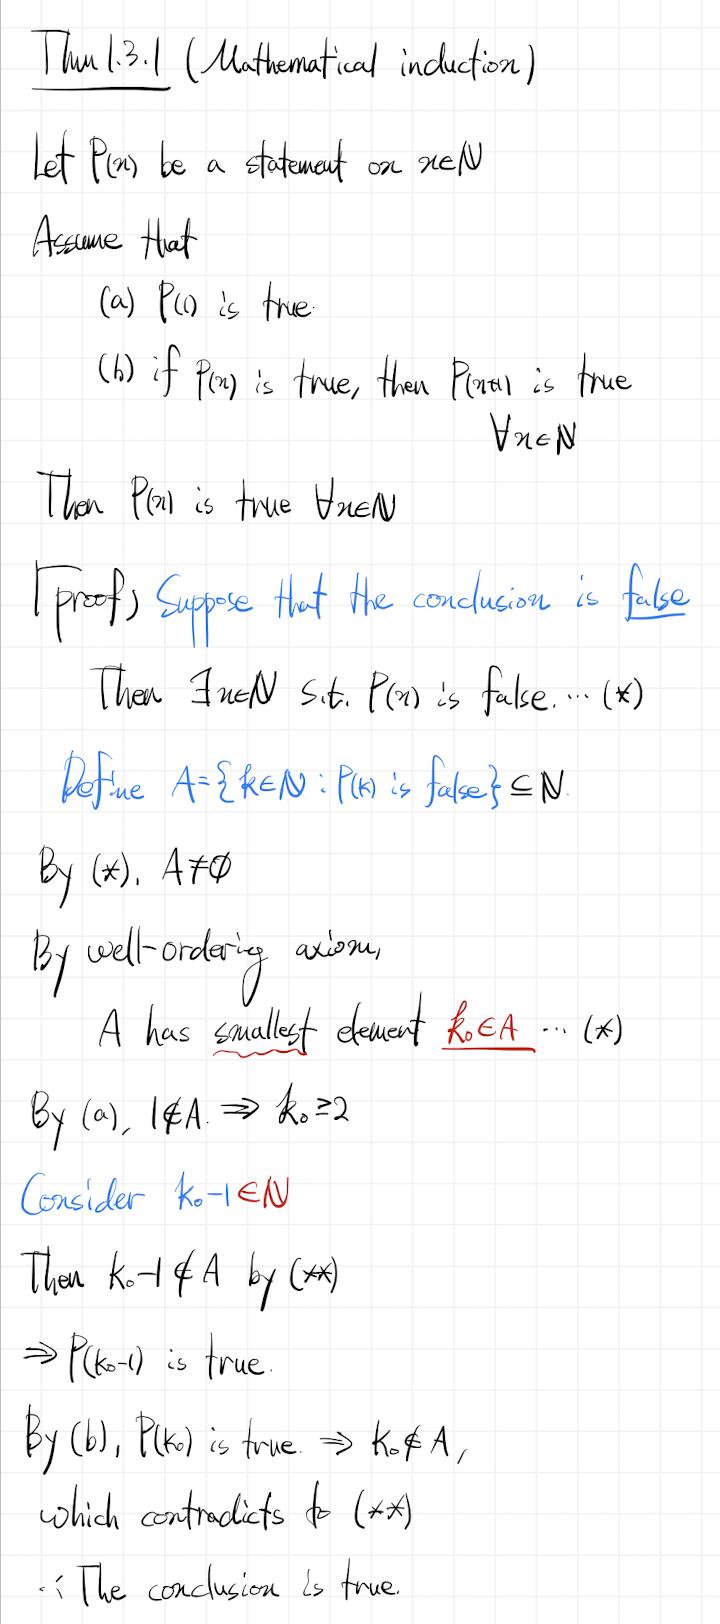 Thm 1.3.1 (Mathematical induction)
Let P(n) be a statement on n∈ℕ
Assume that
(a) P(1) is true.
(b) if P(n) is true, then P(n+1) is true
∀n∈ℕ
Then P(n) is true ∀n∈ℕ
proof) Suppose that the conclusion is false
Then ∃n∈ℕ s.t. P(n) is false. ⋯ (*)
Define A={k∈ℕ : P(k) is false} ⊆ ℕ.
By (*), A≠∅
By well-ordering axiom,
A has smallest element k₀∈A ⋯ (*)
By (a), 1∉A. ⇒ k₀≥2
Consider k₀-1∈ℕ
Then k₀-1∉A by (**)
⇒ P(k₀-1) is true.
By (b), P(k₀) is true. ⇒ k₀∉A,
which contradicts to (**)
∴ The conclusion is true.